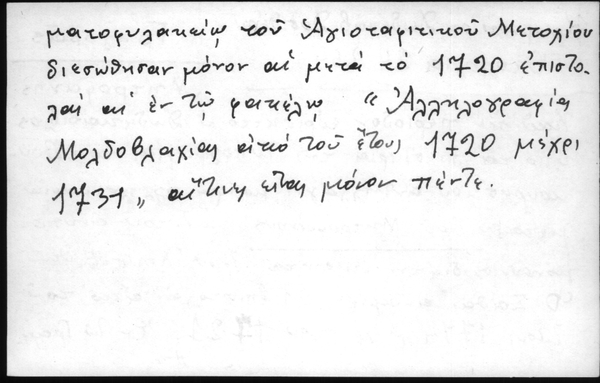 ματοφυλακείῳ τοῦ Ἁγιοταφιτικοῦ Μετοχίου
διεσώθησαν μόνον αἱ μετά τό 1720 ἐπιστο-
λαί αἱ ἐν τῷ φακέλῳ "Ἀλληλογραφία
Μολδοβλαχίας ἀπό τοῦ ἔτους 1720 μέχρι
1731" αἵτινες εἶναι μόνον πέντε.